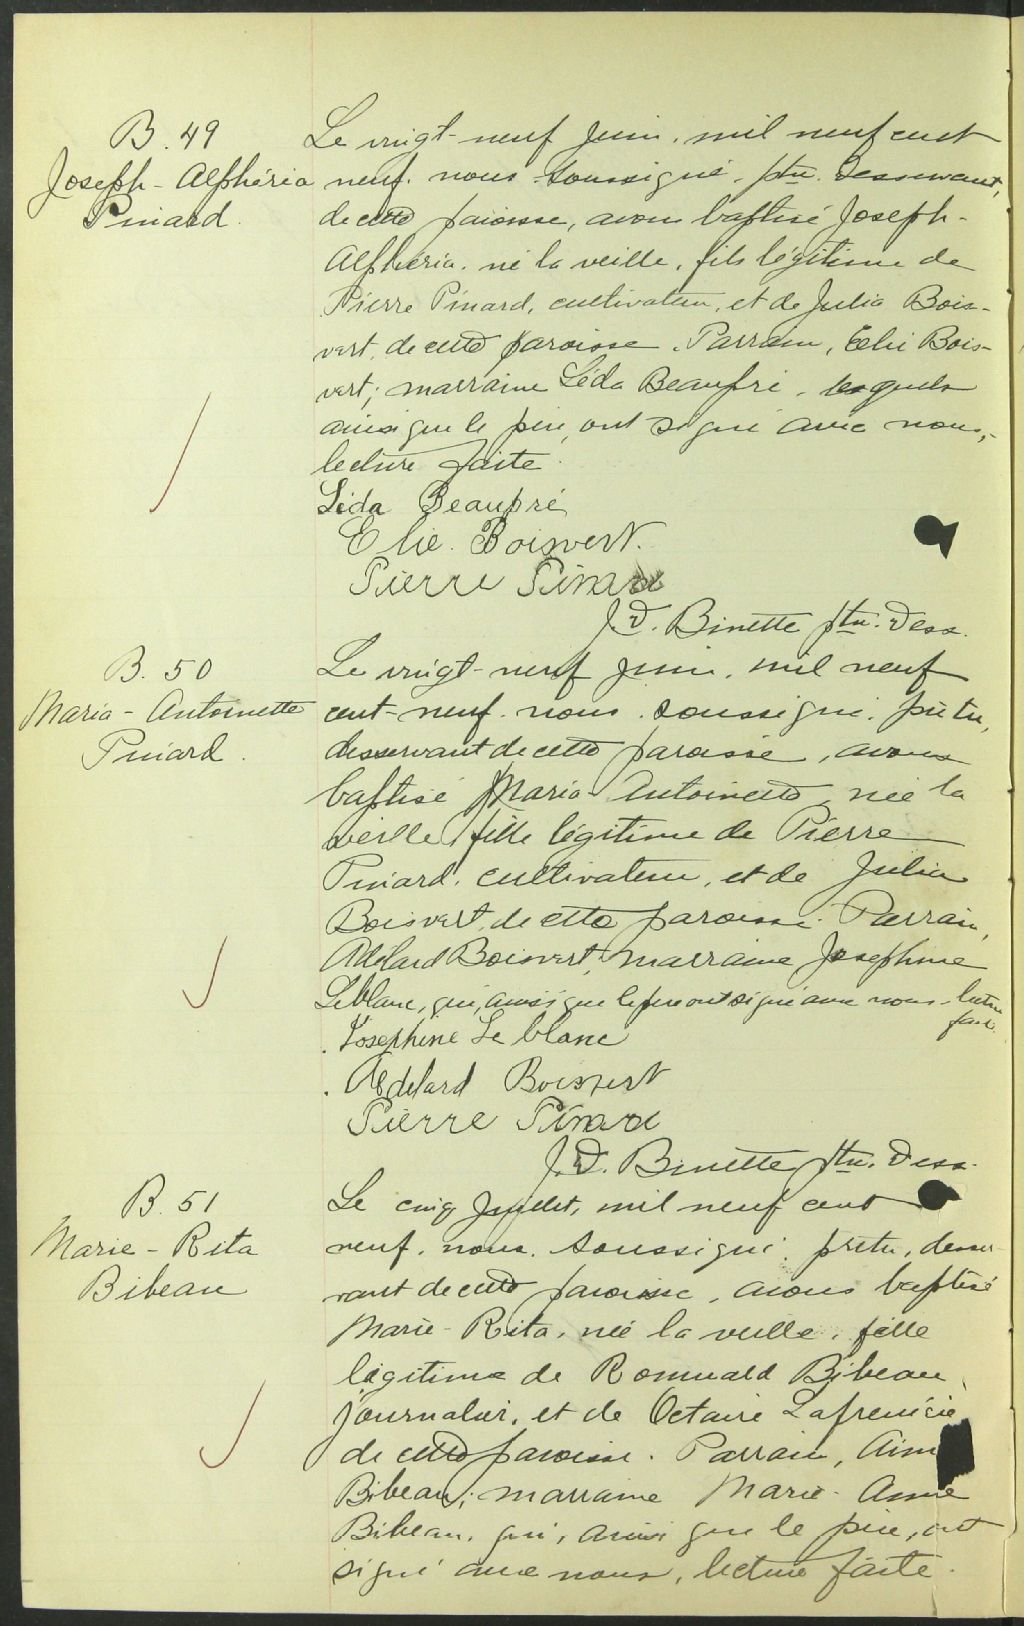 B. 49
Joseph - Alphéria
Pinard.
Le vingt-neuf juin, mil neuf cent
neuf, nous soussigné, ptre desservant,
de cette paroisse, avons baptisé Joseph-
Alphéria, né la veille, fils légitime de
Pierre Pinard, cultivateur, et de Julia Bois-
vert, de cette paroisse. Parrain, Elie Bois-
vert; marraine Léda Beaupré, lesquels
ainsi que le père, ont signé avec nous,
lecture faite.
Léda Beaupré
Elie. Boisvert.
Pierre Pinard
J. D. Binette ptre. Dess.
B. 50
Maria - Antoinette
Pinard.
Le vingt-neuf juin, mil neuf
cent-neuf, nous soussigné, prêtre,
desservant de cette paroisse, avons
baptisé Maria-Antoinette, née la
veille, fille légitime de Pierre
Pinard, cultivateur, et de Julia
Boisvert, de cette paroisse. Parrain,
Adélard Boisvert, marraine Josephine
Leblanc, qui, ainsi que le père ont signé avec nous - lecture
faite.
Josephine Le blanc
Adelard Boisvert
Pierre Pinard
J. D. Binette, ptre. Dess.
B. 51
Marie - Rita
Bibeau
Le cinq Juillet, mil neuf cent
neuf, nous, soussigné, prêtre, desser-
vant de cette paroisse, avons baptisé
Marie-Rita, née la veille, fille
légitime de Romuald Bibeau,
journalier, et de Octavie Lafrenière
de cette paroisse. Parrain, Aim
Bibeau; marraine Marie-Anne
Bibeau, qui, ainsi que le père, ont
signé avec nous, lecture faite.